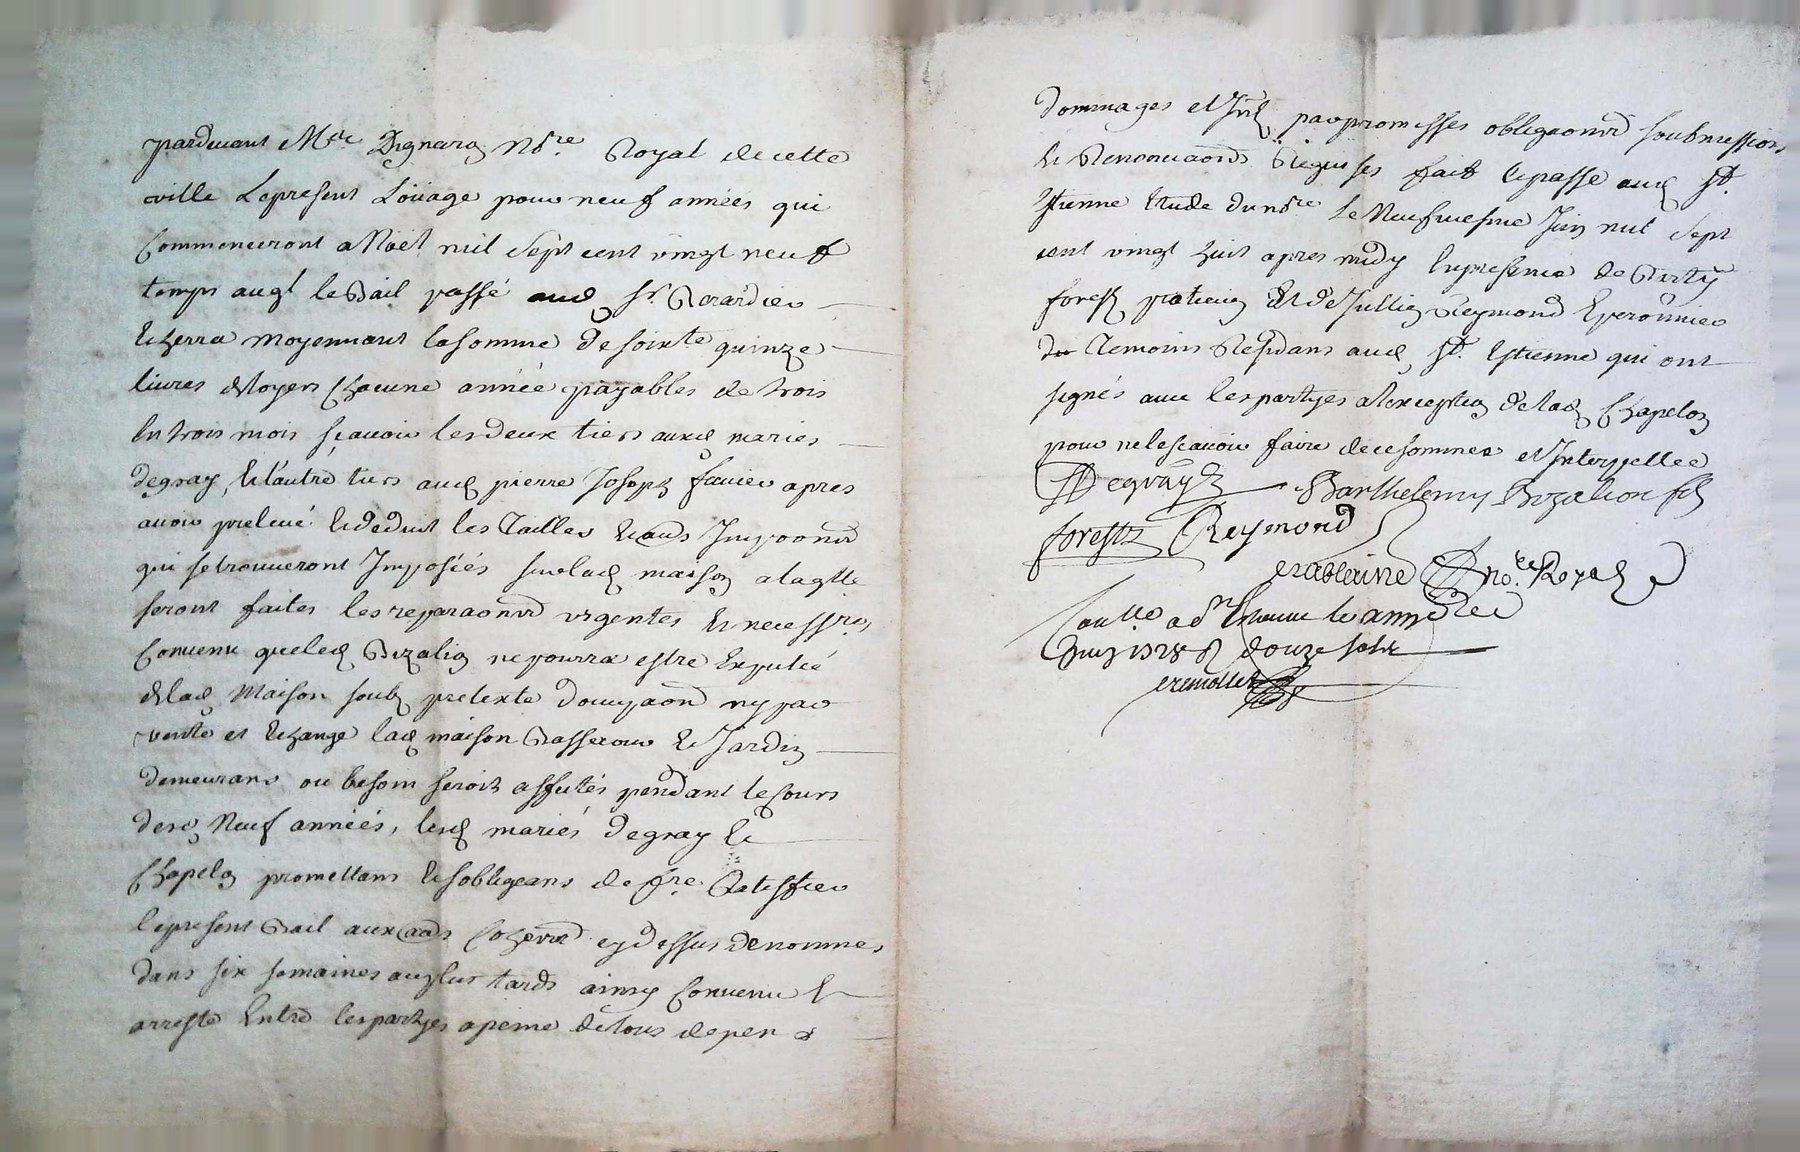 pardevant Mtre Dignaroz Nore Royal de cette
ville Le present Loüage pour neuf années qui
Commenceront a Noël mil sept cent vingt neuf
temps auql le Bail passé aud Sr Berardier
Echerra moyennant la somme de soixte quinze
livres de loyer Chacune année payables de trois
En trois mois sçavoir les deux tiers auxd mariés
degray, Et l'autre tiers aud pierre Joseph favier apres
avoir prelevé Et deduit les Tailles Et aus Impoons
qui se trouveront Imposées sur lad maison a laqlle
seront faites les reparaons urgentes Et necessres
Convenu que led Bizalion ne pourra estre Expulcé
de lad Maison soub pretexte d'occupaon ny par
vente et Echange lad maison Basse cour Et Jardin
demeurans ou besoin seroit affectés pendant le Cours
desd Neuf années, lesd mariés degray Et
Chapelon promettans Et s'obligeans de fre Ratiffier
le present Bail aux aus Coherrs cy dessus denommes
dans six semaines au plus tards ainsy Convenu Et
arresté Entre les partyes a peine de tous depens
dommages et Intz par promesses obligaons soubmissions
Et Renonciaons Requises fait Et passé aud St
Etienne Etude du nore le Neufviesme Juin mil sept
cent vingt huit apres midy En presence de
forest praticien Et de Jullien Reymond Eperonnier
Temoins Residans aud St. Estienne qui ont
signés avec les partyes a l'exception de lad Chapelon
pour ne le sçavoir faire de ce sommée et Interpellée
Degray Barthelemy Bizalion fils
forest Reymond
nore Royal
Conlle a St Etienne le
Juin 1728 R douze sols